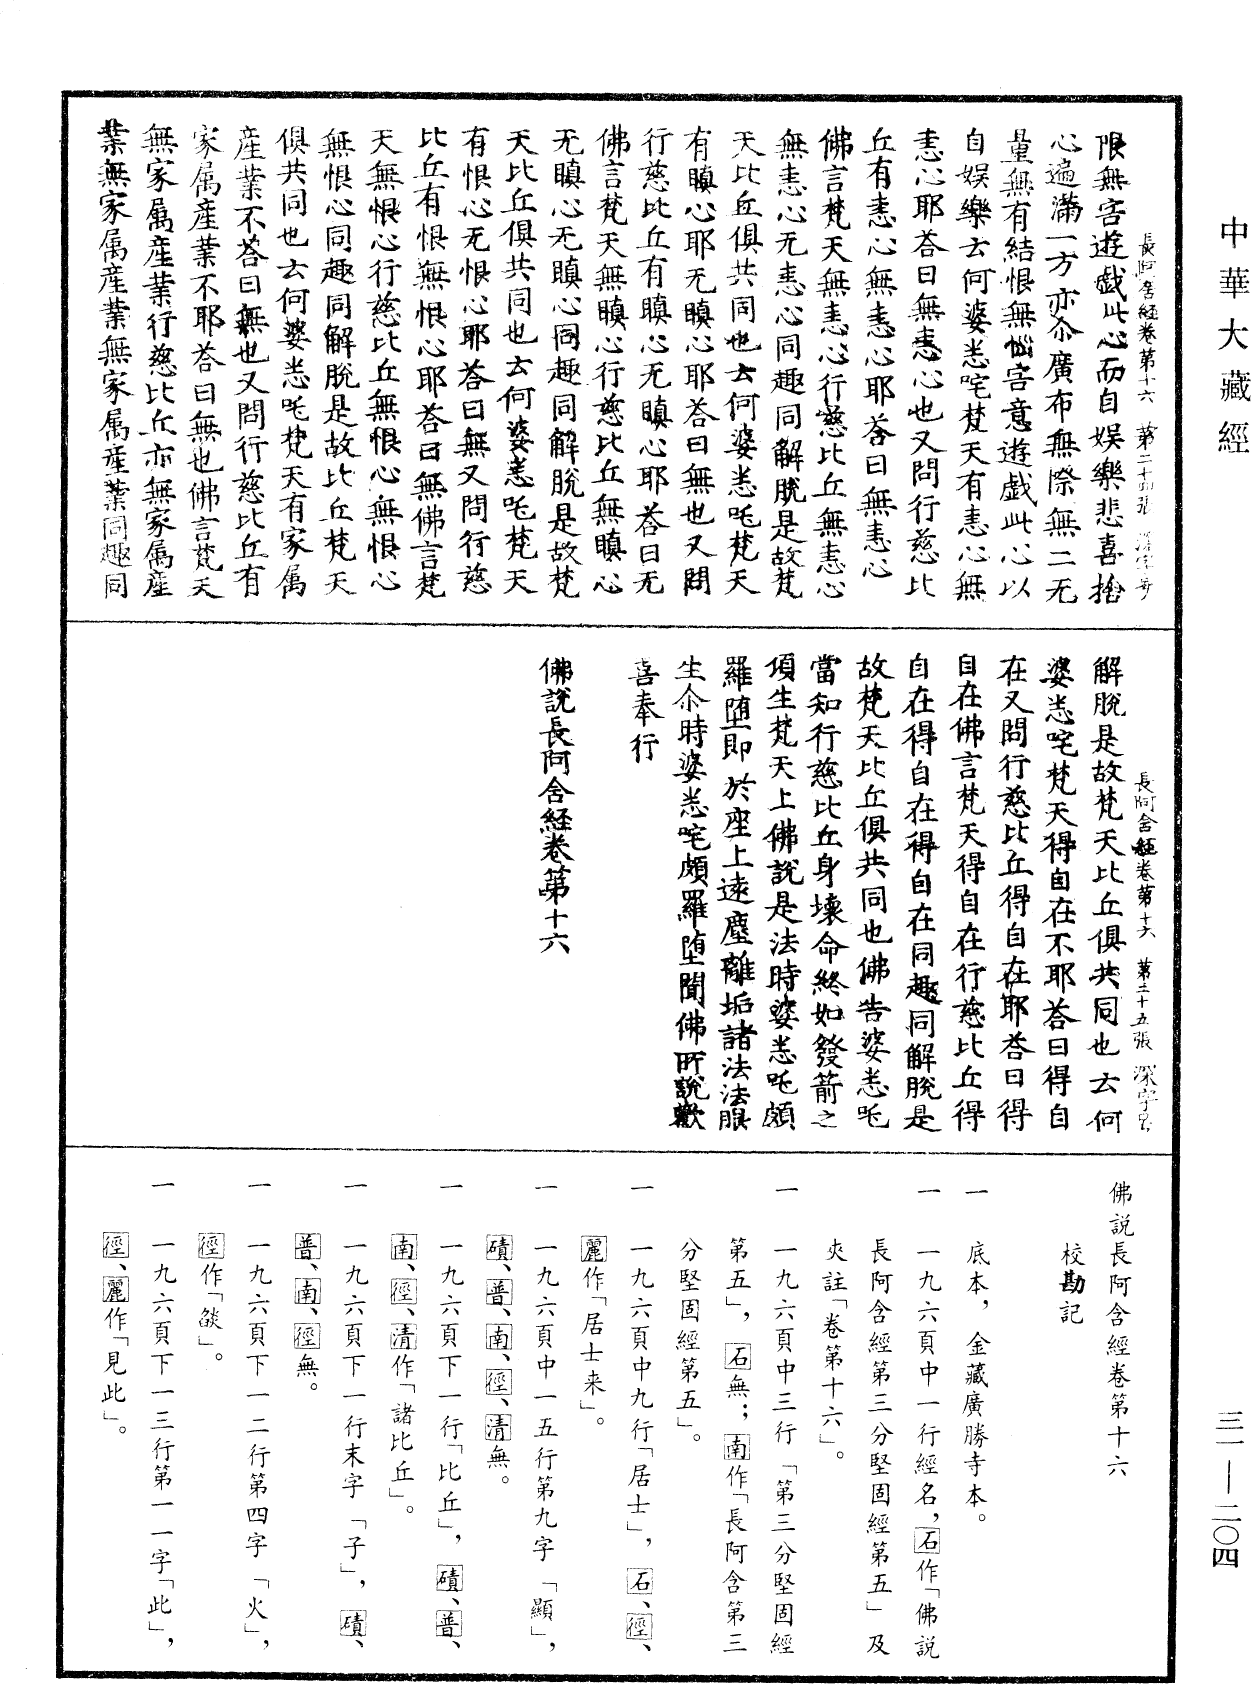 中華大藏經
三一——二〇四
長阿含經卷第十六　第二十四張　深字號
限無害遊戲此心而自娛樂悲喜捨
心遍滿一方亦尒廣布無際無二无
量無有結恨無惱害意遊戲此心以
自娛樂云何婆悉咤梵天有恚心無
恚心耶荅曰無恚心也又問行慈比
丘有恚心無恚心耶荅曰無恚心
佛言梵天無恚心行慈比丘無恚心
無恚心无恚心同趣同解脫是故梵
天比丘俱共同也云何婆悉吒梵天
有瞋心耶无瞋心耶荅曰無也又問
行慈比丘有瞋心无瞋心耶荅曰无
佛言梵天無瞋心行慈比丘無瞋心
无瞋心无瞋心同趣同解脫是故梵
天比丘俱共同也云何婆悉吒梵天
有恨心无恨心耶荅曰無又問行慈
比丘有恨無恨心耶荅曰無佛言梵
天無恨心行慈比丘無恨心無恨心
無恨心同趣同解脫是故比丘梵天
俱共同也云何婆悉吒梵天有家属
產業不荅曰無也又問行慈比丘有
家属產業不耶荅曰無也佛言梵天
無家属產業行慈比丘亦無家属產
業無家属產業無家属產業同趣同
長阿含經卷第十六　第二十五張　深字号
解脫是故梵天比丘俱共同也云何
婆悉咤梵天得自在不耶荅曰得自
在又問行慈比丘得自在耶荅曰得
自在佛言梵天得自在行慈比丘得
自在得自在得自在同趣同解脫是
故梵天比丘俱共同也佛告婆悉吒
當知行慈比丘身壞命終如發箭之
頃生梵天上佛說是法時婆悉吒頗
羅堕即於座上遠塵離垢諸法法眼
生尒時婆悉咤頗羅堕聞佛所說歡
喜奉行
佛說長阿含經卷第十六
佛說長阿含經卷第十六
校勘記
一　底本，金藏廣勝寺本。
一　一九六頁中一行經名，石作「佛說
長阿含經第三分堅固經第五」及
夾註「卷第十六」。
一　一九六頁中三行「第三分堅固經
第五」，石無；南作「長阿含第三
分堅固經第五」。
一　一九六頁中九行「居士」，石、徑、
麗作「居士来」。
一　一九六頁中一五行第九字「顯」，
磧、普、南、徑、清無。
一　一九六頁下一行「比丘」，磧、普、
南、徑、清作「諸比丘」。
一　一九六頁下一行末字「子」，磧、
普、南、徑無。
一　一九六頁下一二行第四字「火」，
徑作「燄」。
一　一九六頁下一三行第一一字「此」，
徑、麗作「見此」。